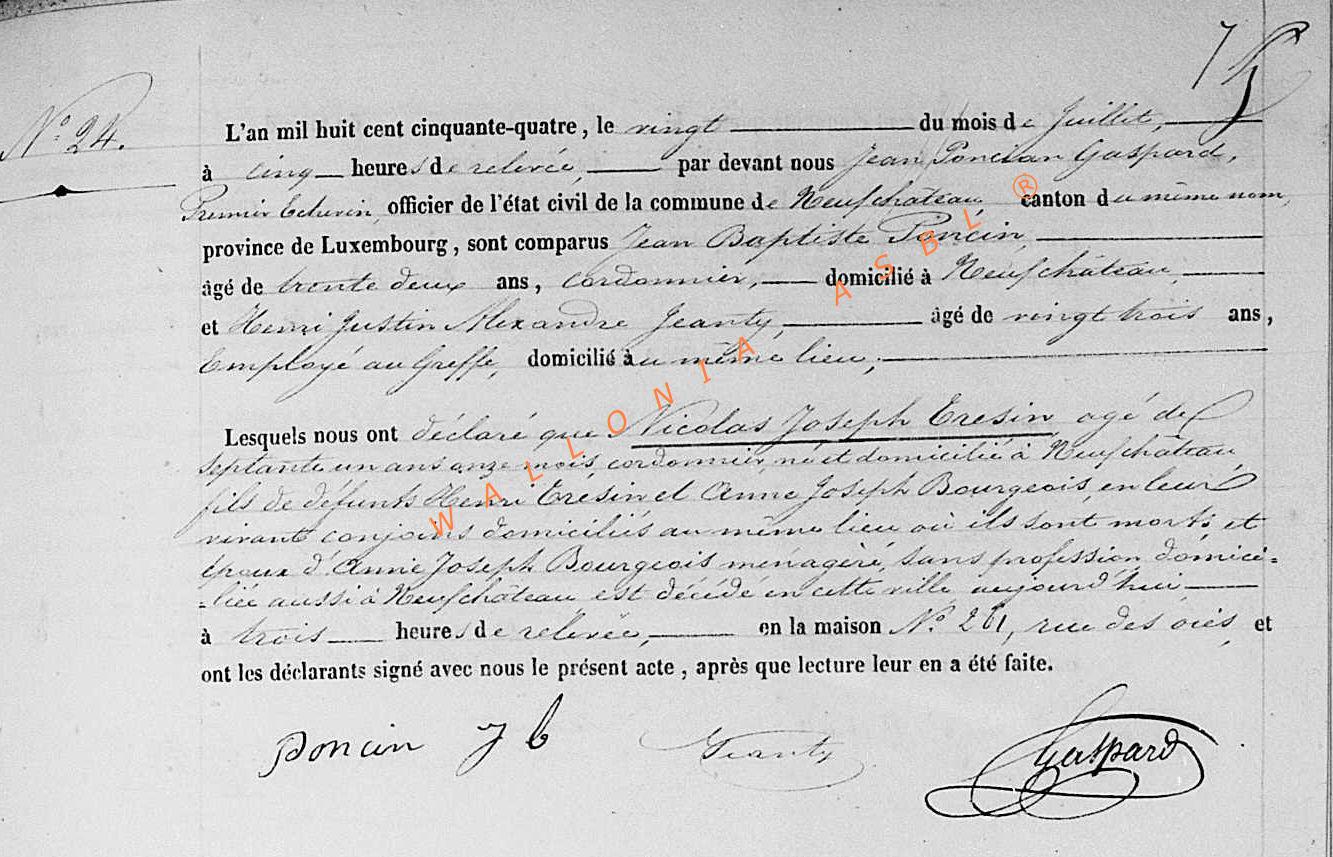 Nº 24.
L'an mil huit cent cinquante-quatre, le vingt du mois de Juillet,
à cinq heures de relevée, par devant nous Jean Poncian Gaspard,
Premier Echevin, officier de l'état civil de la commune de Neufchâteau canton du même nom,
province de Luxembourg, sont comparus Jean Baptiste Poncin,
âgé de trente deux ans, cordonnier, domicilié à Neufchâteau,
et Henri Justin Alexandre Jeanty, âgé de vingt trois ans,
Employé au Greffe, domicilié au même lieu;
Lesquels nous ont déclaré que Nicolas Joseph Eresin, agé de
septante un ans onze mois, cordonnier, né et domicilié à Neufchâteau
fils de défunts Henri Erésin et Anne Joseph Bourgeois, en leur
vivant conjoins domiciliés au même lieu où ils sont morts et
époux d'Anne Joseph Bourgeois ménagère, sans profession, domici-
-liée aussi à Neufchâteau est décédé en cette ville aujourd'hui
à trois heures de relevée, en la maison Nº 261, rue des oies, et
ont les déclarants signé avec nous le présent acte, après que lecture leur en a été faite.
Poncin J b Jeanty Gaspard
WALLONIA ASBL ®